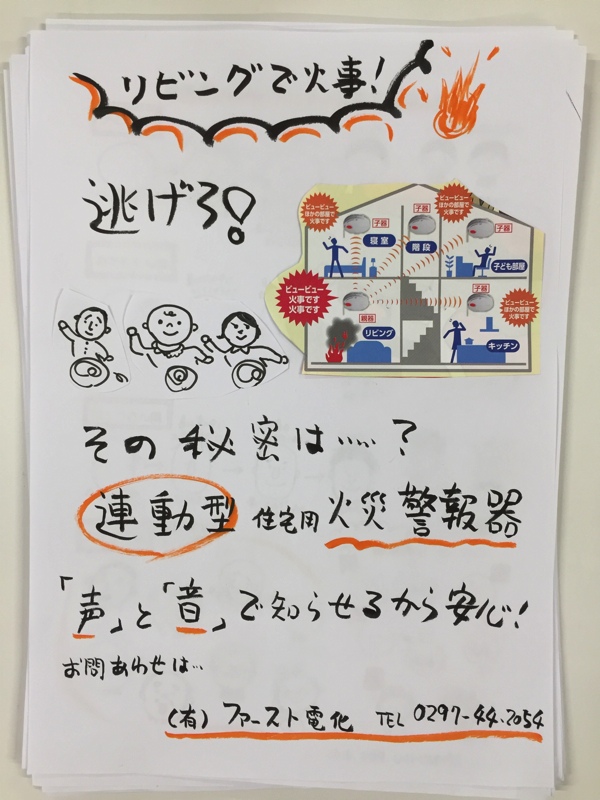 リビングで火事!
逃げろ!
ピューピュー
ほかの部屋で
火事です
子器
寝室
子器
階段
ピューピュー
ほかの部屋で
火事です
子器
子ども部屋
ピューピュー
火事です
火事です
親器
リビング
子器
キッチン
ピューピュー
ほかの部屋で
火事です
その秘密は‥‥?
連動型 住宅用 火災警報器
「声」と「音」で知らせるから安心!
お問あわせは…
(有) ファースト電化 TEL 0297-44-2054